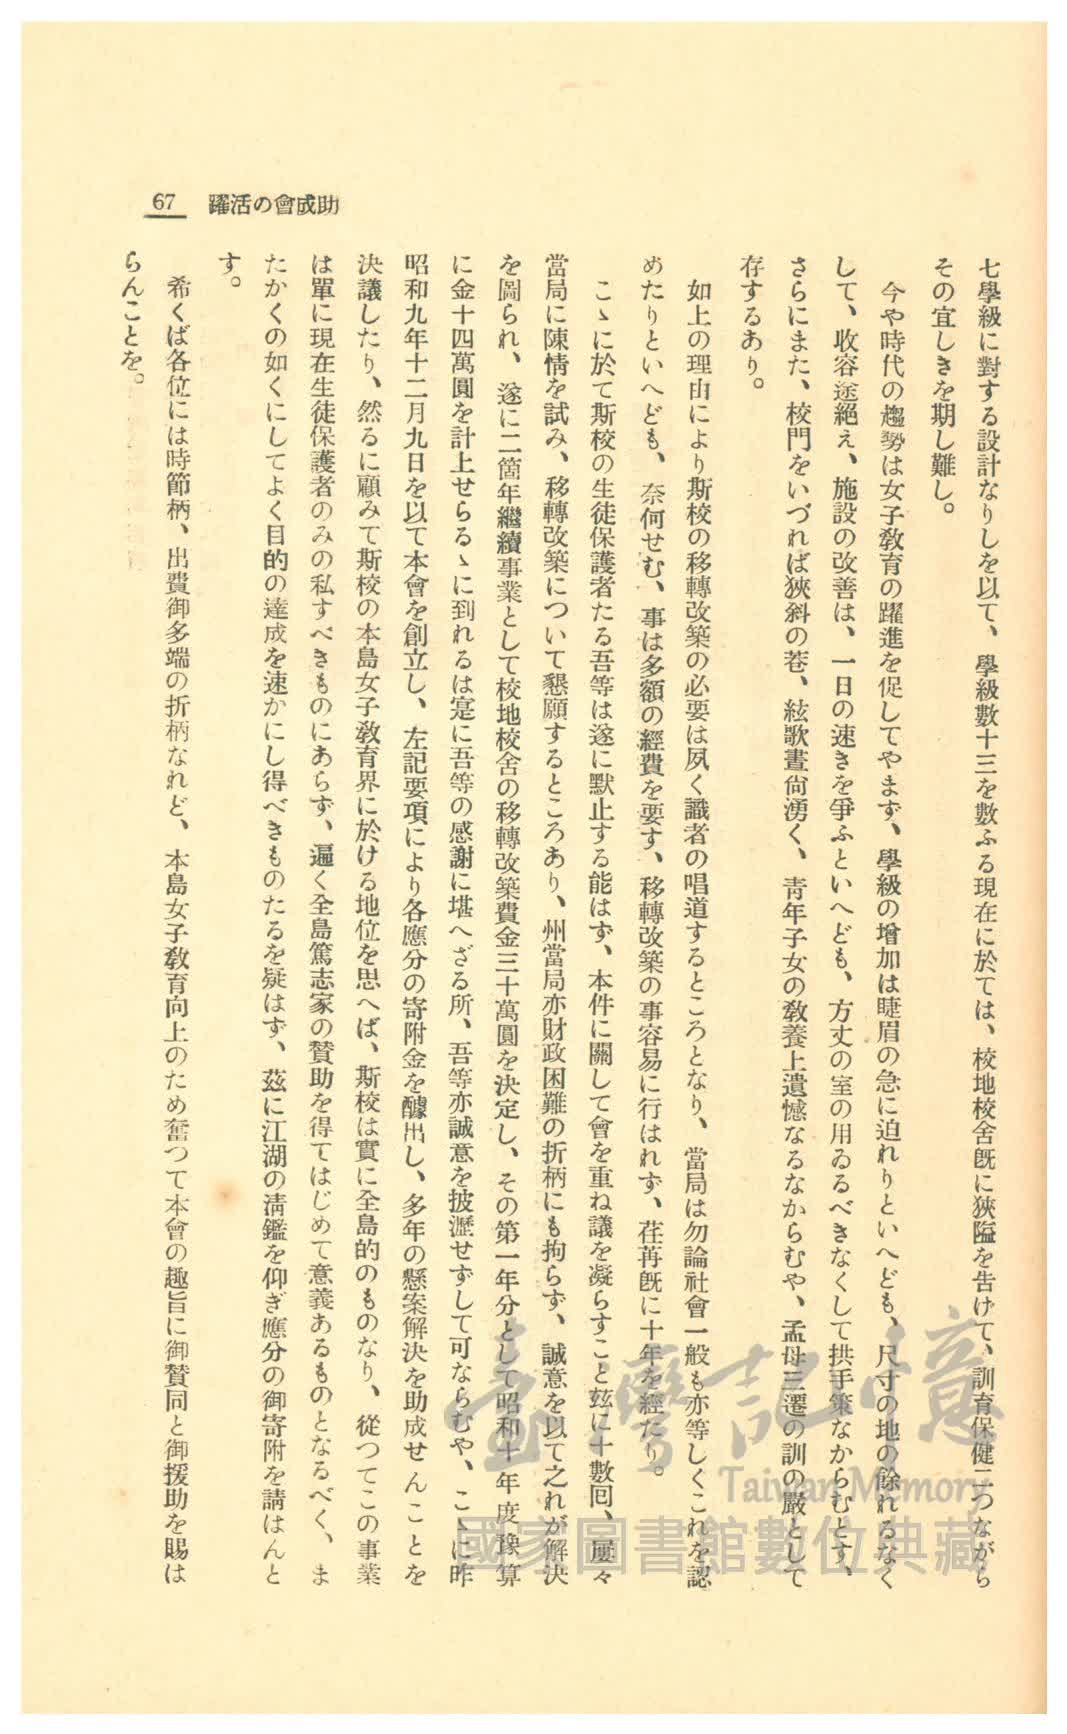 67 助成會の活躍
七學級に對する設計なりしを以て、學級數十三を數ふる現在に於ては、校地校舍旣に狹隘を吿げて、訓育保健二つながら
その宜しきを期し難し。
今や時代の趨勢は女子敎育の躍進を促してやまず、學級の增加は睫眉の急に迫れりといへども、尺寸の地の餘れるなく
して、收容途絕え、施設の改善は、一日の速きを爭ふといへども、方丈の室の用ゐるべきなくして拱手策なからむとす、
さらにまた、校門をいづれば狹斜の巷、絃歌晝尙湧く、靑年子女の敎養上遺憾なるなからむや、孟母三遷の訓の嚴として
存するあり。
如上の理由により斯校の移轉改築の必要は夙く識者の唱道するところとなり、當局は勿論社會一般も亦等しくこれを認
めたりといへども、奈何せむ、事は多額の經費を要す、移轉改築の事容易に行はれず、荏苒旣に十年を經たり。
こゝに於て斯校の生徒保護者たる吾等は遂に默止する能はず、本件に關して會を重ね議を凝らすこと玆に十數回、屢々
當局に陳情を試み、移轉改築について懇願するところあり、州當局亦財政困難の折柄にも拘らず、誠意を以て之れが解決
を圖られ、遂に二箇年繼續事業として校地校舍の移轉改築費金三十萬圓を決定し、その第一年分として昭和十年度豫算
に金十四萬圓を計上せらるゝに到れるは寔に吾等の感謝に堪へざる所、吾等亦誠意を披瀝せずして可ならむや、こゝに昨
昭和九年十二月九日を以て本會を創立し、左記要項により各應分の寄附金を醵出し、多年の懸案解決を助成せんことを
決議したり、然るに顧みて斯校の本島女子敎育界に於ける地位を思へば、斯校は實に全島的のものなり、從つてこの事業
は單に現在生徒保護者のみの私すべきものにあらず、遍く全島篤志家の贊助を得てはじめて意義あるものとなるべく、ま
たかくの如くにしてよく目的の達成を速かにし得べきものたるを疑はず、茲に江湖の淸鑑を仰ぎ應分の御寄附を請はんと
す。
希くば各位には時節柄、出費御多端の折柄なれど、本島女子敎育向上のため奮つて本會の趣旨に御贊同と御援助を賜は
らんことを。
臺灣記憶
Taiwan Memory
國家圖書館數位典藏